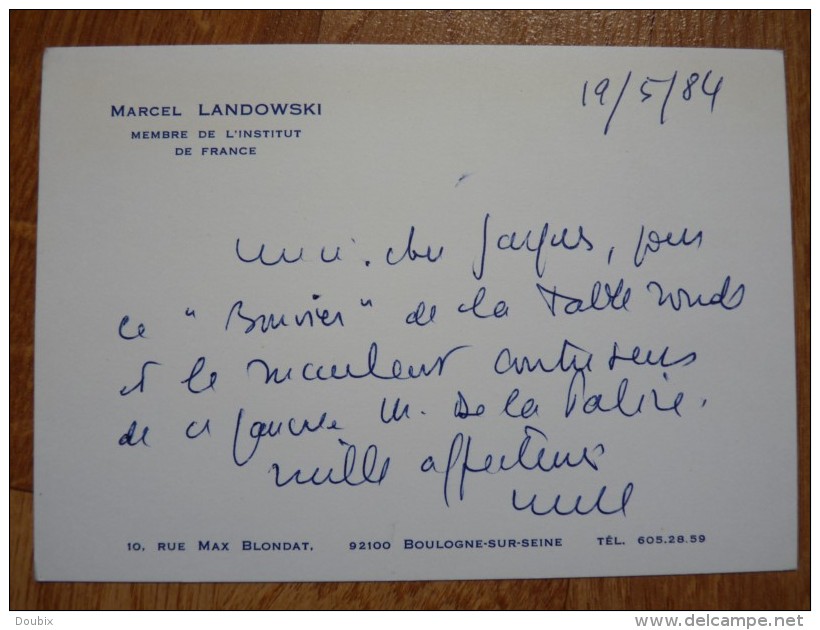 MARCEL LANDOWSKI
MEMBRE DE L'INSTITUT
DE FRANCE
19/5/84
Merci, cher Jacques, pour
ce "Bouvier" de la Table ronde
et le succulent contresens
de ce pauvre M. De la Palice.
mille affections
10, RUE MAX BLONDAT, 92100 BOULOGNE-SUR-SEINE TÉL. 605.28.59
Doubix
www.delcampe.net